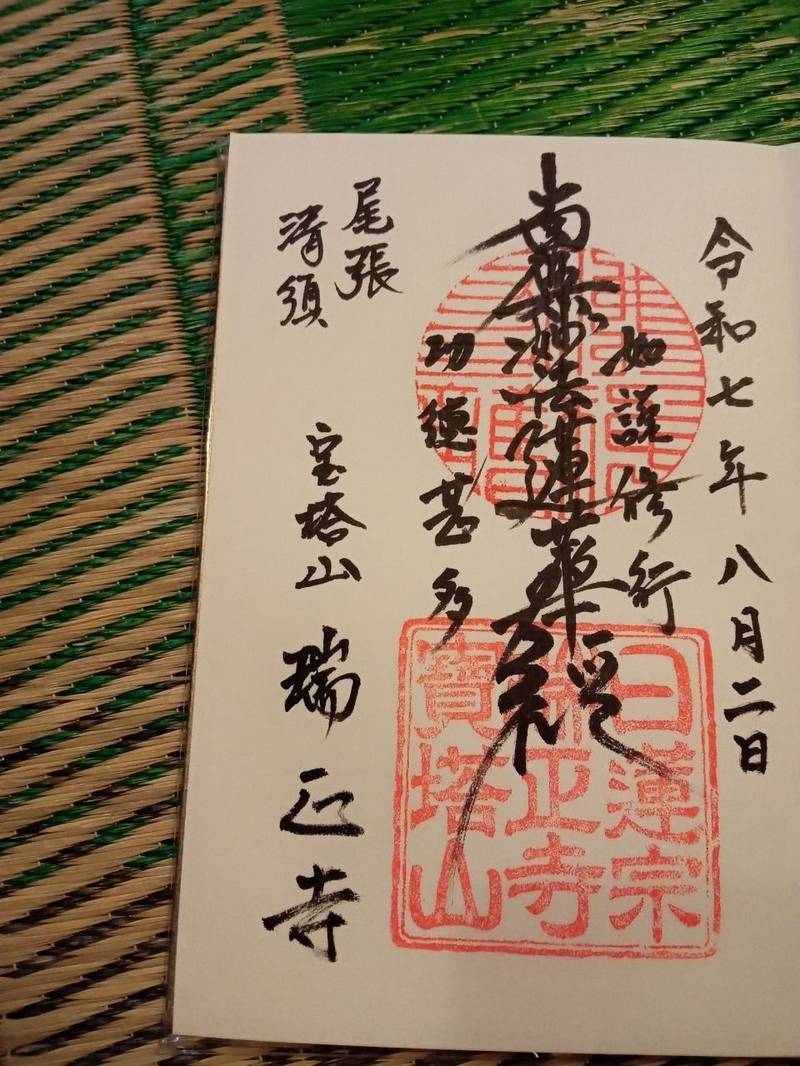 令和七年八月二日
如説修行
南無妙法蓮華経
功徳甚多
尾張
清須
宝塔山 瑞正寺
日蓮宗
瑞正寺
寶塔山